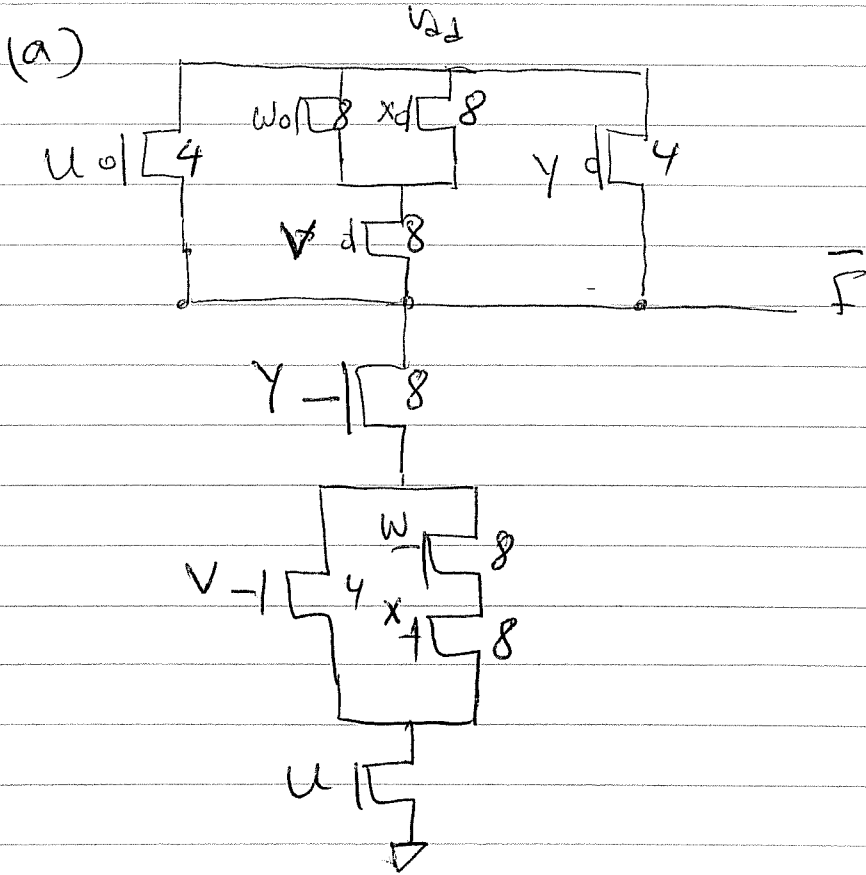 (a)
Vdd
W 8 X 8
U 4
Y 4
V 8
F
Y 8
W 8
V 4
X 8
U